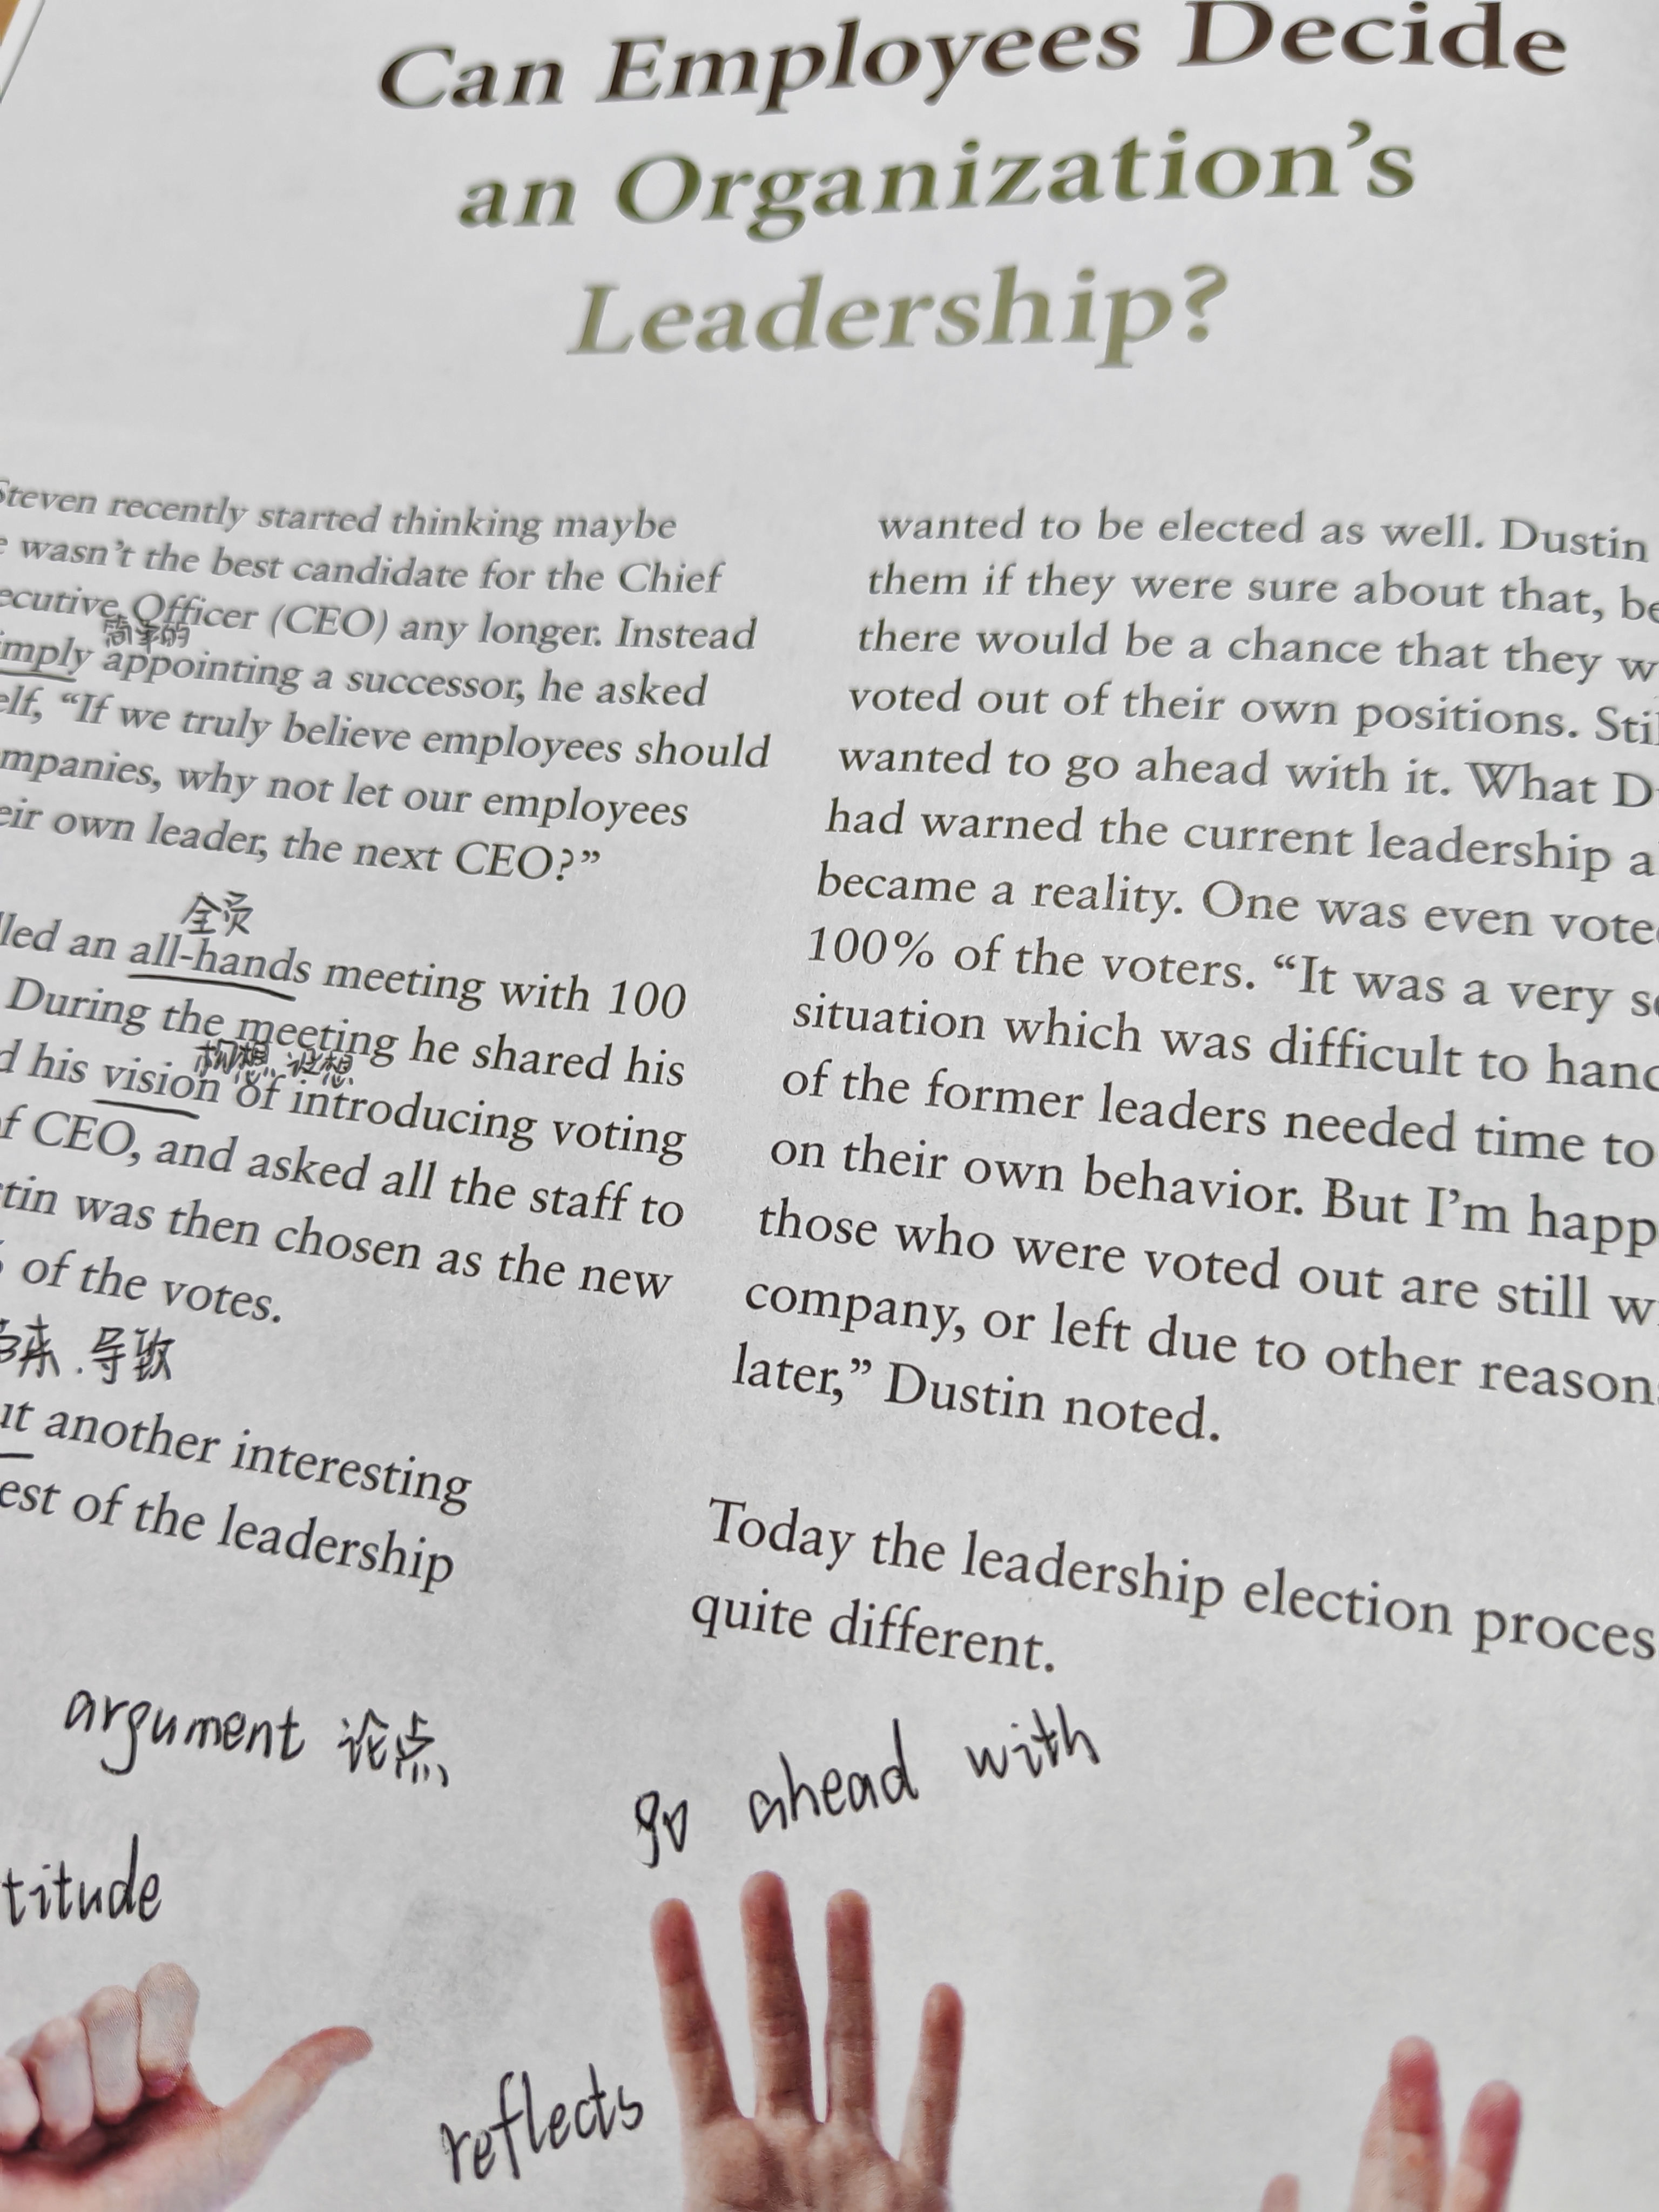 Can Employees Decide
an Organization's
Leadership?
Steven recently started thinking maybe
wasn't the best candidate for the Chief
Officer (CEO) any longer. Instead
简单的
appointing a successor, he asked
“If we truly believe employees should
why not let our employees
own leader, the next CEO?”
全员
an all-hands meeting with 100
During the meeting he shared his
构想 设想
his vision of introducing voting
CEO, and asked all the staff to
was then chosen as the new
of the votes.
导致
another interesting
of the leadership
wanted to be elected as well. Dustin
them if they were sure about that,
there would be a chance that they
voted out of their own positions.
wanted to go ahead with it. What
had warned the current leadership
became a reality. One was even
100% of the voters. “It was a very
situation which was difficult to
of the former leaders needed time to
on their own behavior. But I'm
those who were voted out are still
company, or left due to other
later,” Dustin noted.
Today the leadership election
quite different.
argument 论点
go ahead with
titude
reflects